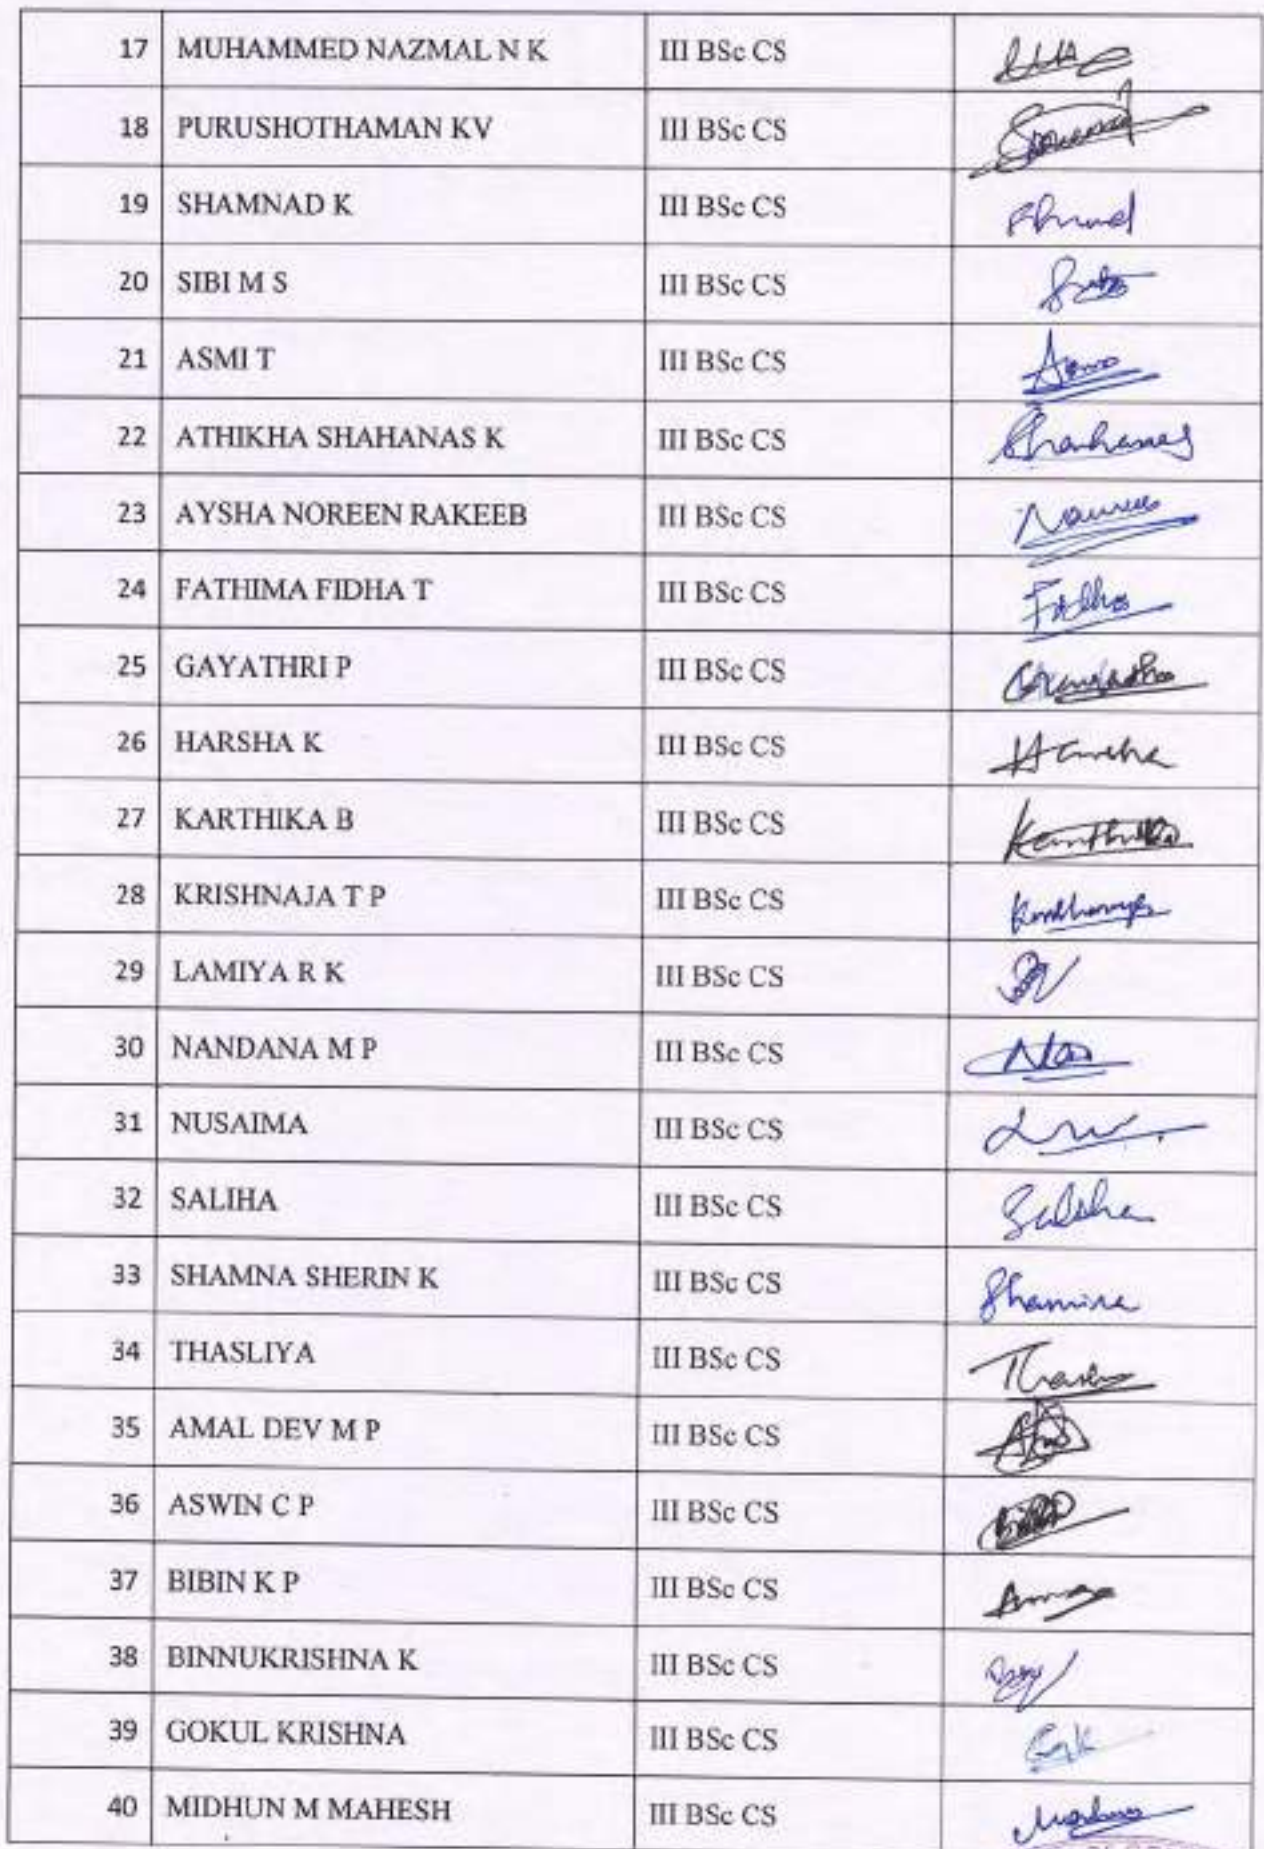 17 MUHAMMED NAZMAL N K III BSc CS
18 PURUSHOTHAMAN KV III BSc CS
19 SHAMNAD K III BSc CS
20 SIBI M S III BSc CS
21 ASMI T III BSc CS
22 ATHIKHA SHAHANAS K III BSc CS Shahanas
23 AYSHA NOREEN RAKEEB III BSc CS
24 FATHIMA FIDHA T III BSc CS
25 GAYATHRI P III BSc CS
26 HARSHA K III BSc CS Harsha
27 KARTHIKA B III BSc CS Karthika
28 KRISHNAJA T P III BSc CS
29 LAMIYA R K III BSc CS
30 NANDANA M P III BSc CS
31 NUSAIMA III BSc CS
32 SALIHA III BSc CS Saliha
33 SHAMNA SHERIN K III BSc CS
34 THASLIYA III BSc CS
35 AMAL DEV M P III BSc CS
36 ASWIN C P III BSc CS
37 BIBIN K P III BSc CS
38 BINNUKRISHNA K III BSc CS
39 GOKUL KRISHNA III BSc CS
40 MIDHUN M MAHESH III BSc CS